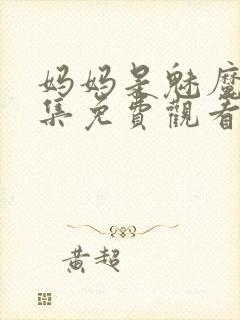 妈妈是魅魔
集免費觀看
黄超